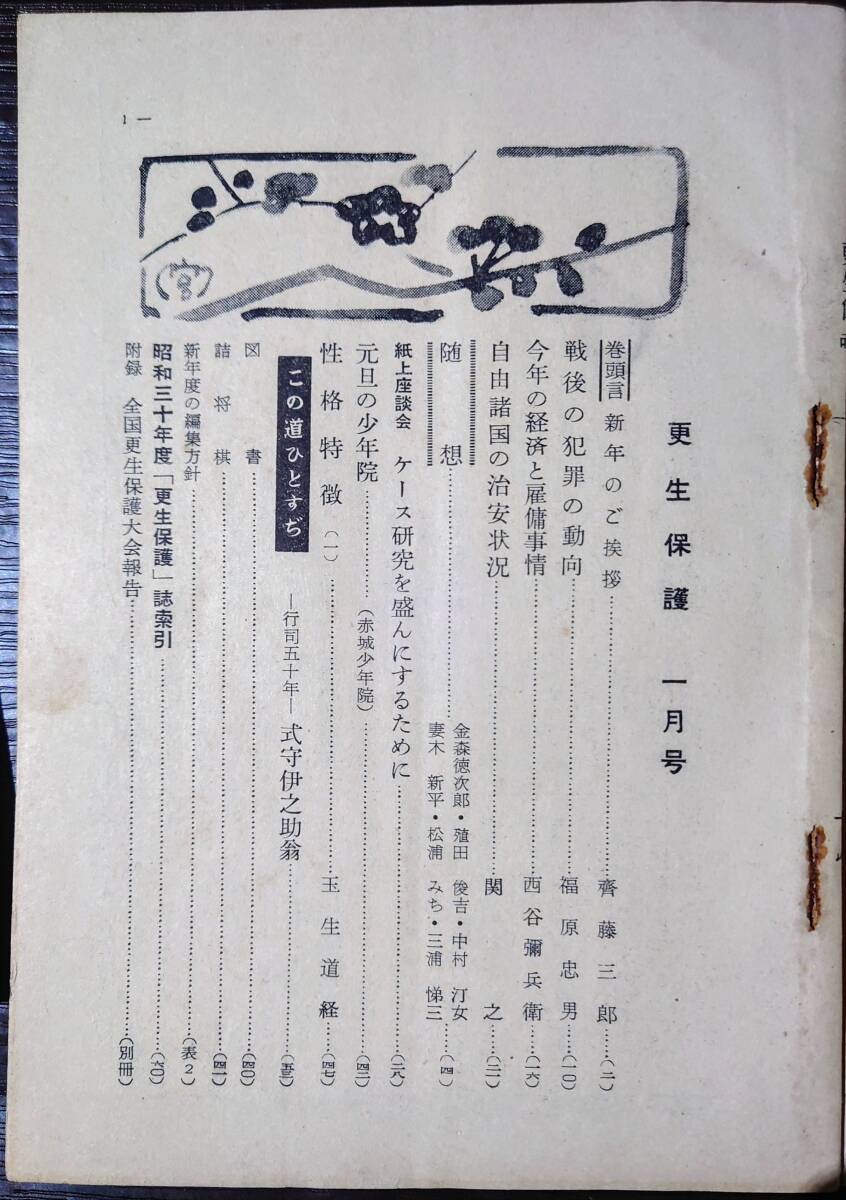 1 —
宮
更生保護　一月号
巻頭言　新年のご挨拶……齊藤三郎……(二)
戦後の犯罪の動向……福原忠男……(一〇)
今年の経済と雇傭事情……西谷彌兵衛……(一六)
自由諸国の治安状況……関　之……(二一)
随想……金森徳次郎・殖田　俊吉・中村　汀女
妻木　新平・松浦　みち・三浦　悌三……(四)
紙上座談会　ケース研究を盛んにするために……(二八)
元旦の少年院……(赤城少年院)……(四三)
性格特徴(一)……玉生道経……(四七)
この道ひとすぢ　—行司五十年—　式守伊之助翁……(五三)
図書……(四〇)
詰将棋……(四一)
新年度の編集方針……(表2)
昭和三十年度「更生保護」誌索引……(六〇)
附録　全国更生保護大会報告……(別冊)